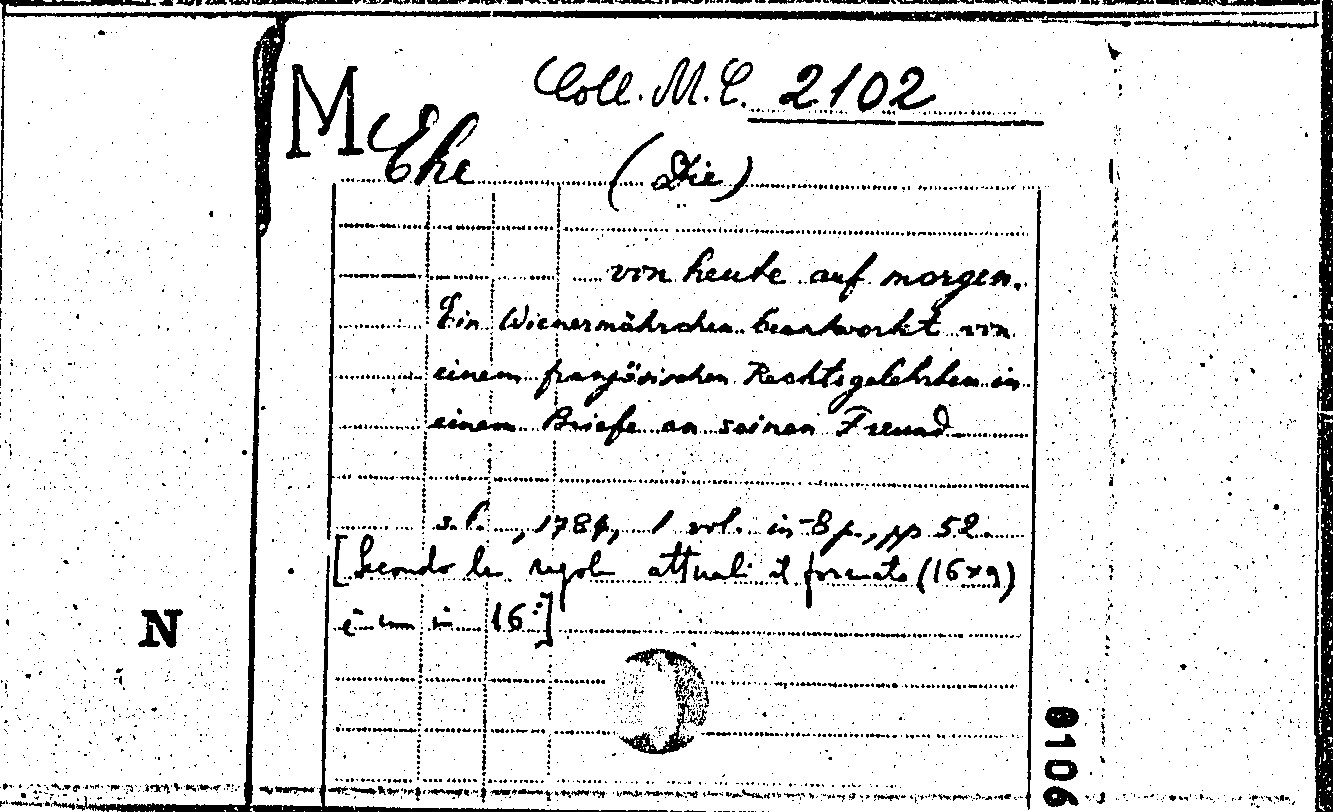 M
Coll. M.C. 2102
Ehe (Die)
von heute auf morgen.
Ein Wienermährchen beantwortet von
einem französischen Rechtsgelehrten in
einem Briefe an seinen Freund
s.l., 1784, 1 vol. in-8 p., pp 52.
[Secondo le regole attuali il formato (16x9)
è un in 16°]
N
0106